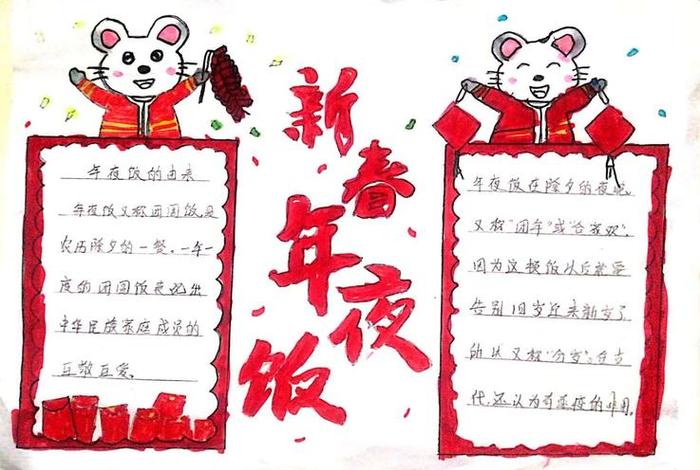 新
春
年
夜
饭
年夜饭的由来
年夜饭又称团圆饭是
农历除夕的一餐。一年一
度的团圆饭表现出
中华民族家庭成员的
互敬互爱。
年夜饭在除夕的夜晚
又称“团年”或“合家欢”,
因为这顿饭以后就要
告别旧岁迎来新岁了
所以又称“分岁”,在古
代,还认为有逐疫的作用。